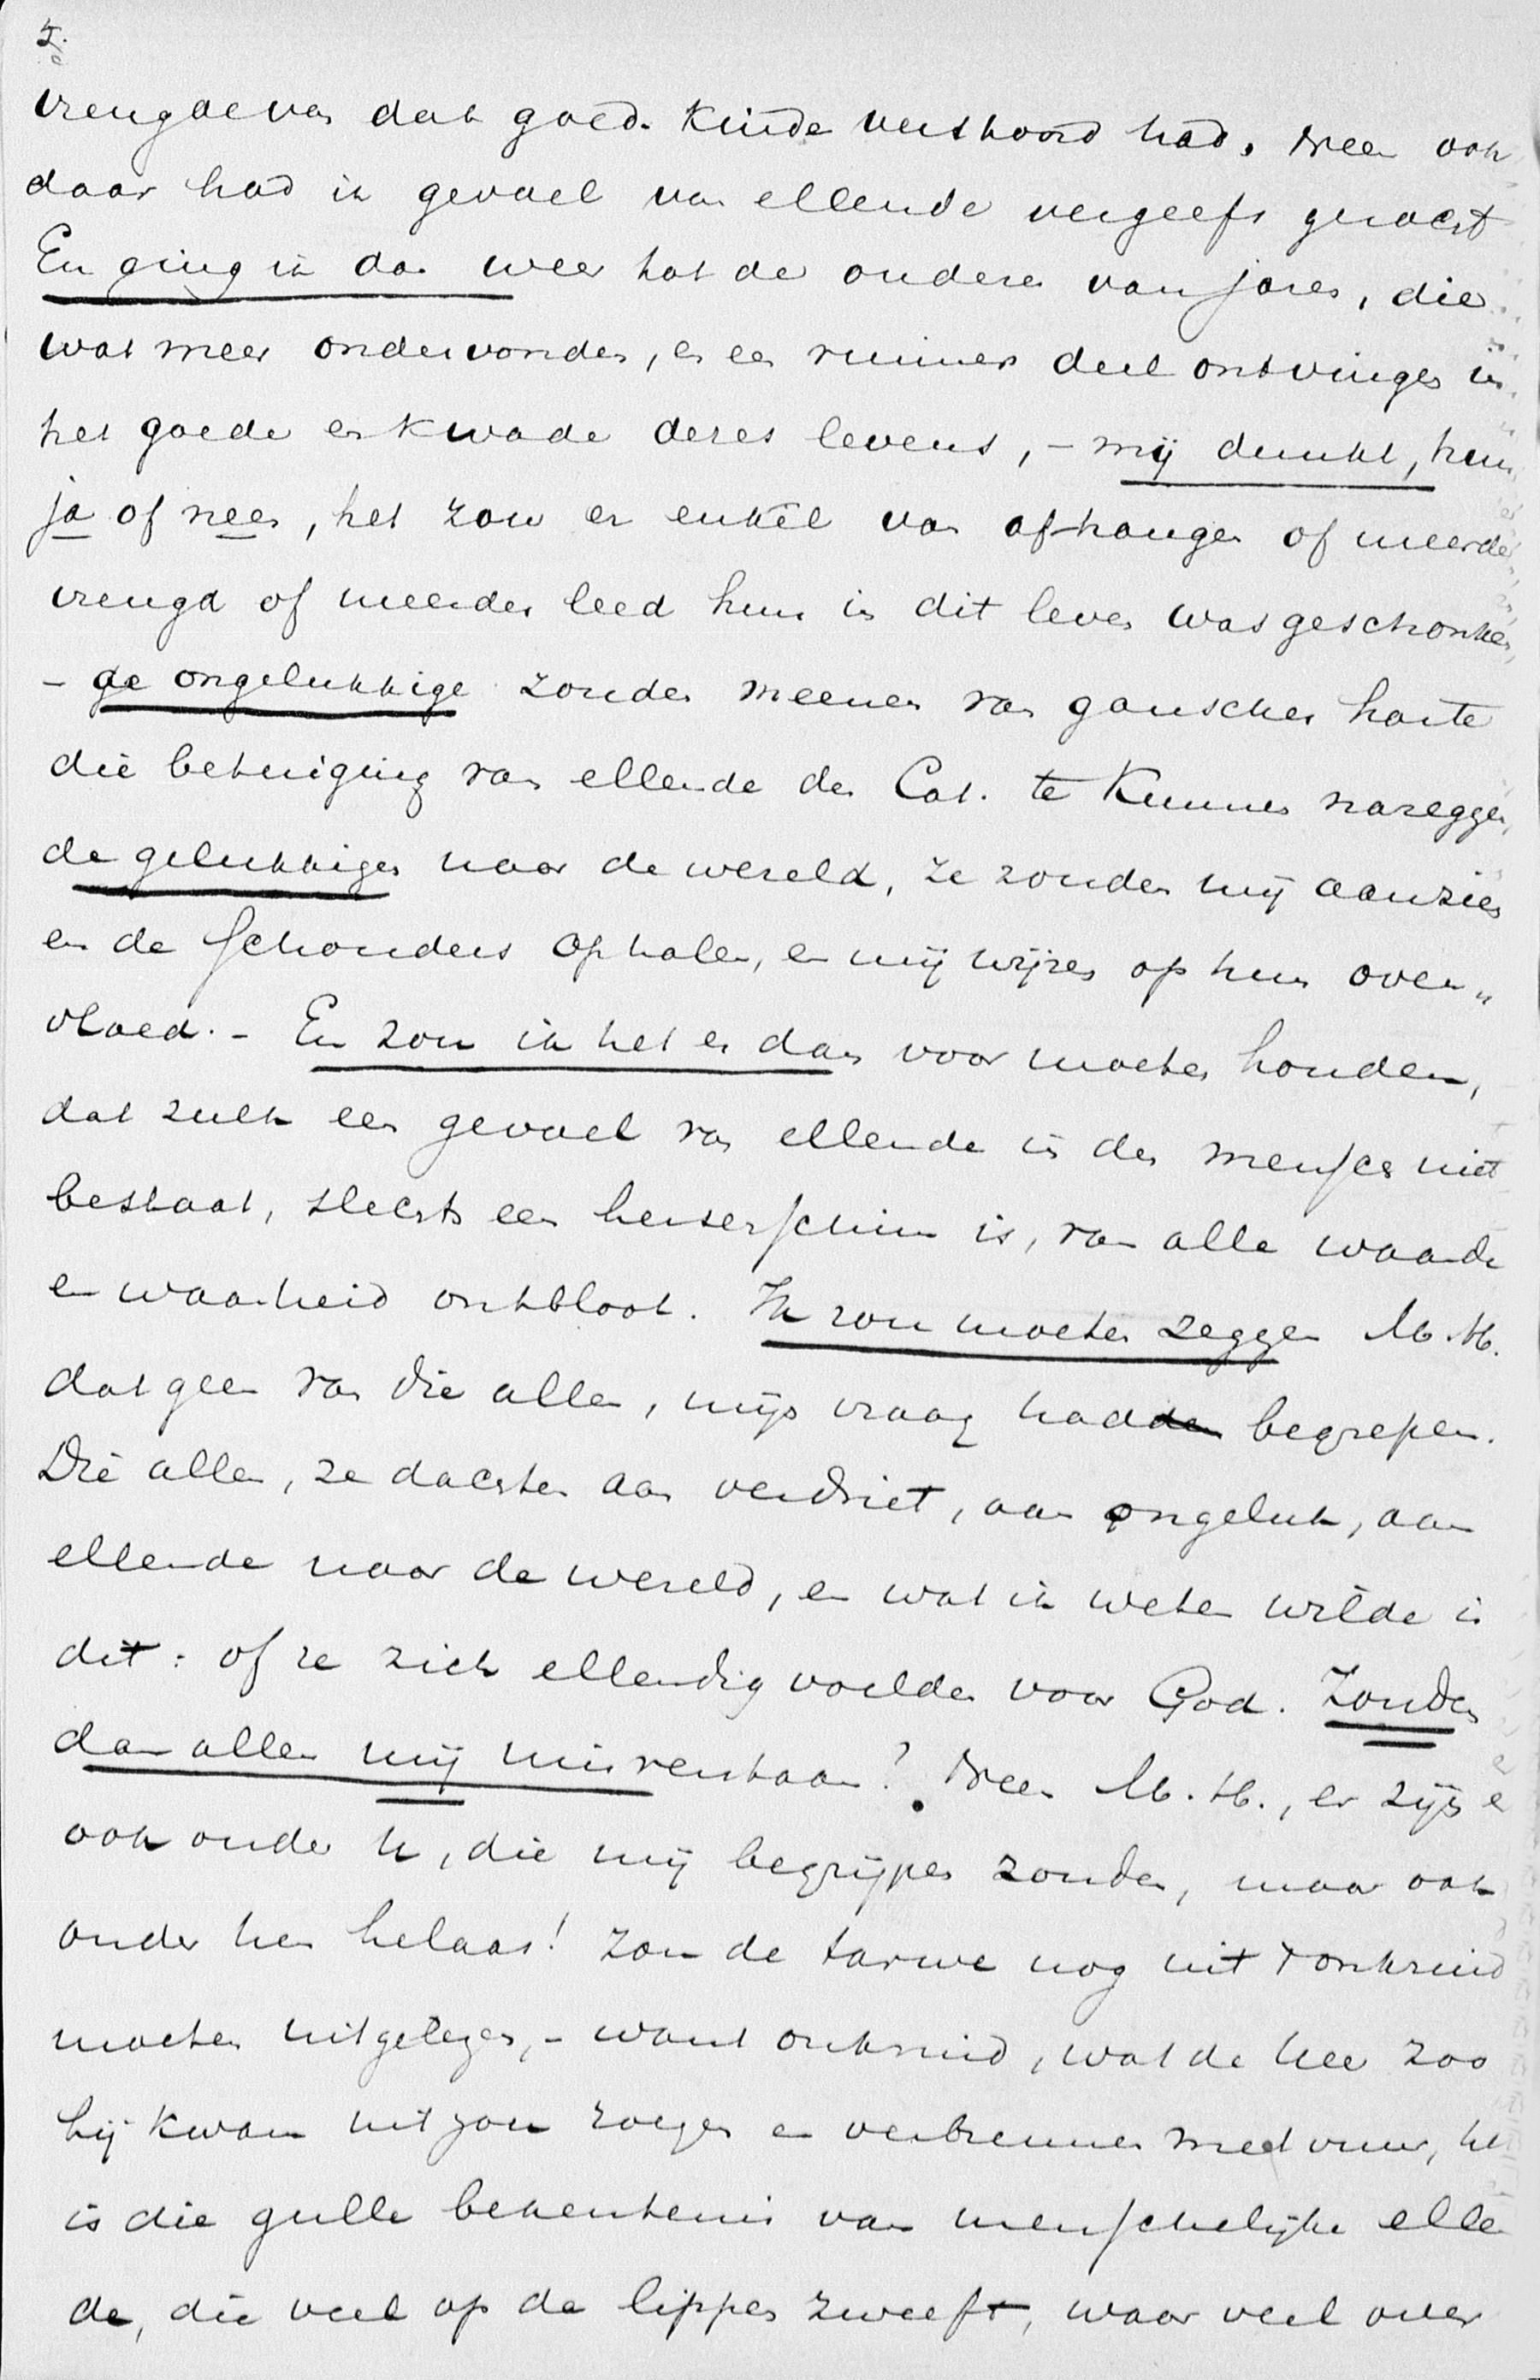 5.
vreugde van dat goed. Kinde verstoord had. Neen ook
daar had ik gevoel van ellende vergeefs gezocht
En ging ik dan weer tot de oudere van jaren, die
wat meer ondervonden, en een ruimer deel ontvingen in
het goede en kwade dezes levens, – mij dunkt, hun
ja of neen, het zou er enkel van afhangen of meerder
vreugd of meerder leed hun in dit leven was geschonken,
– de ongelukkige zouden meenen van ganscher harte
die betuiging van ellende der Cat. te kunnen nazeggen,
de gelukkigen naar de wereld, ze zouden mij aanzien
en de schouders ophalen, en mij wijzen op hun over„
vloed. – En zou ik het er dan voor moeten houden,
dat zulk een gevoel van ellende in den mensch niet
bestaat, slechts een hersenschim is, van alle waarde
en waarheid ontbloot. Ik zou moeten zeggen M. H.
dat geen van die allen, mijn vraag hadden begrepen.
Die allen, ze dachten aan verdriet, aan ongeluk, aan
ellende naar de wereld, en wat ik weten wilde is
dit: of ze zich ellendig voelden voor God. Zouden
dan allen mij misverstaan? Neen M. H., er zijn er
ook onder U, die mij begrijpen zouden, maar ook
onder hen helaas! zou de tarwe nog uit 't onkruid
moeten uitgelezen, – want onkruid, wat de Heer zoo
hij kwam uit zou zuigen en verbrennen met vuur, het
is die gulle bekentenis van menschelijke ellen
de, die veel op de lippen zweeft, waar veel over